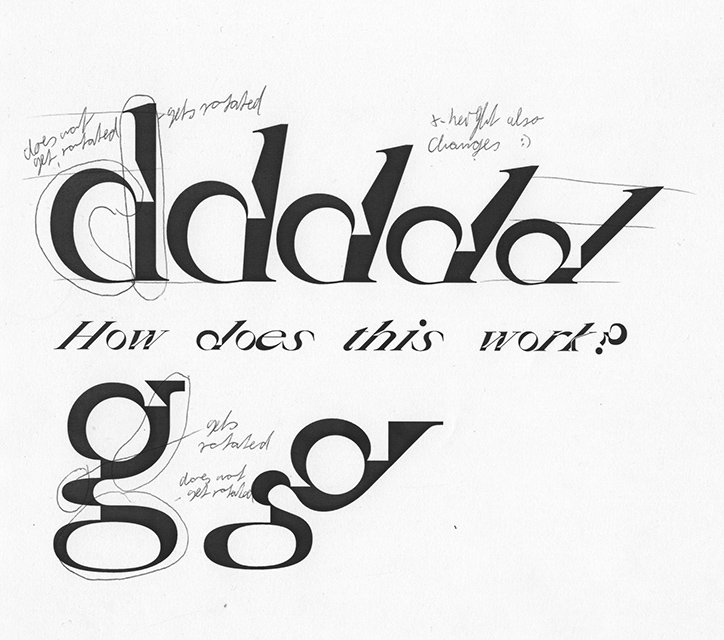 does not
get rotated
gets rotated
x-height also
changes :)
ddddd
How does this work?
gg
gets
rotated
does not
get rotated